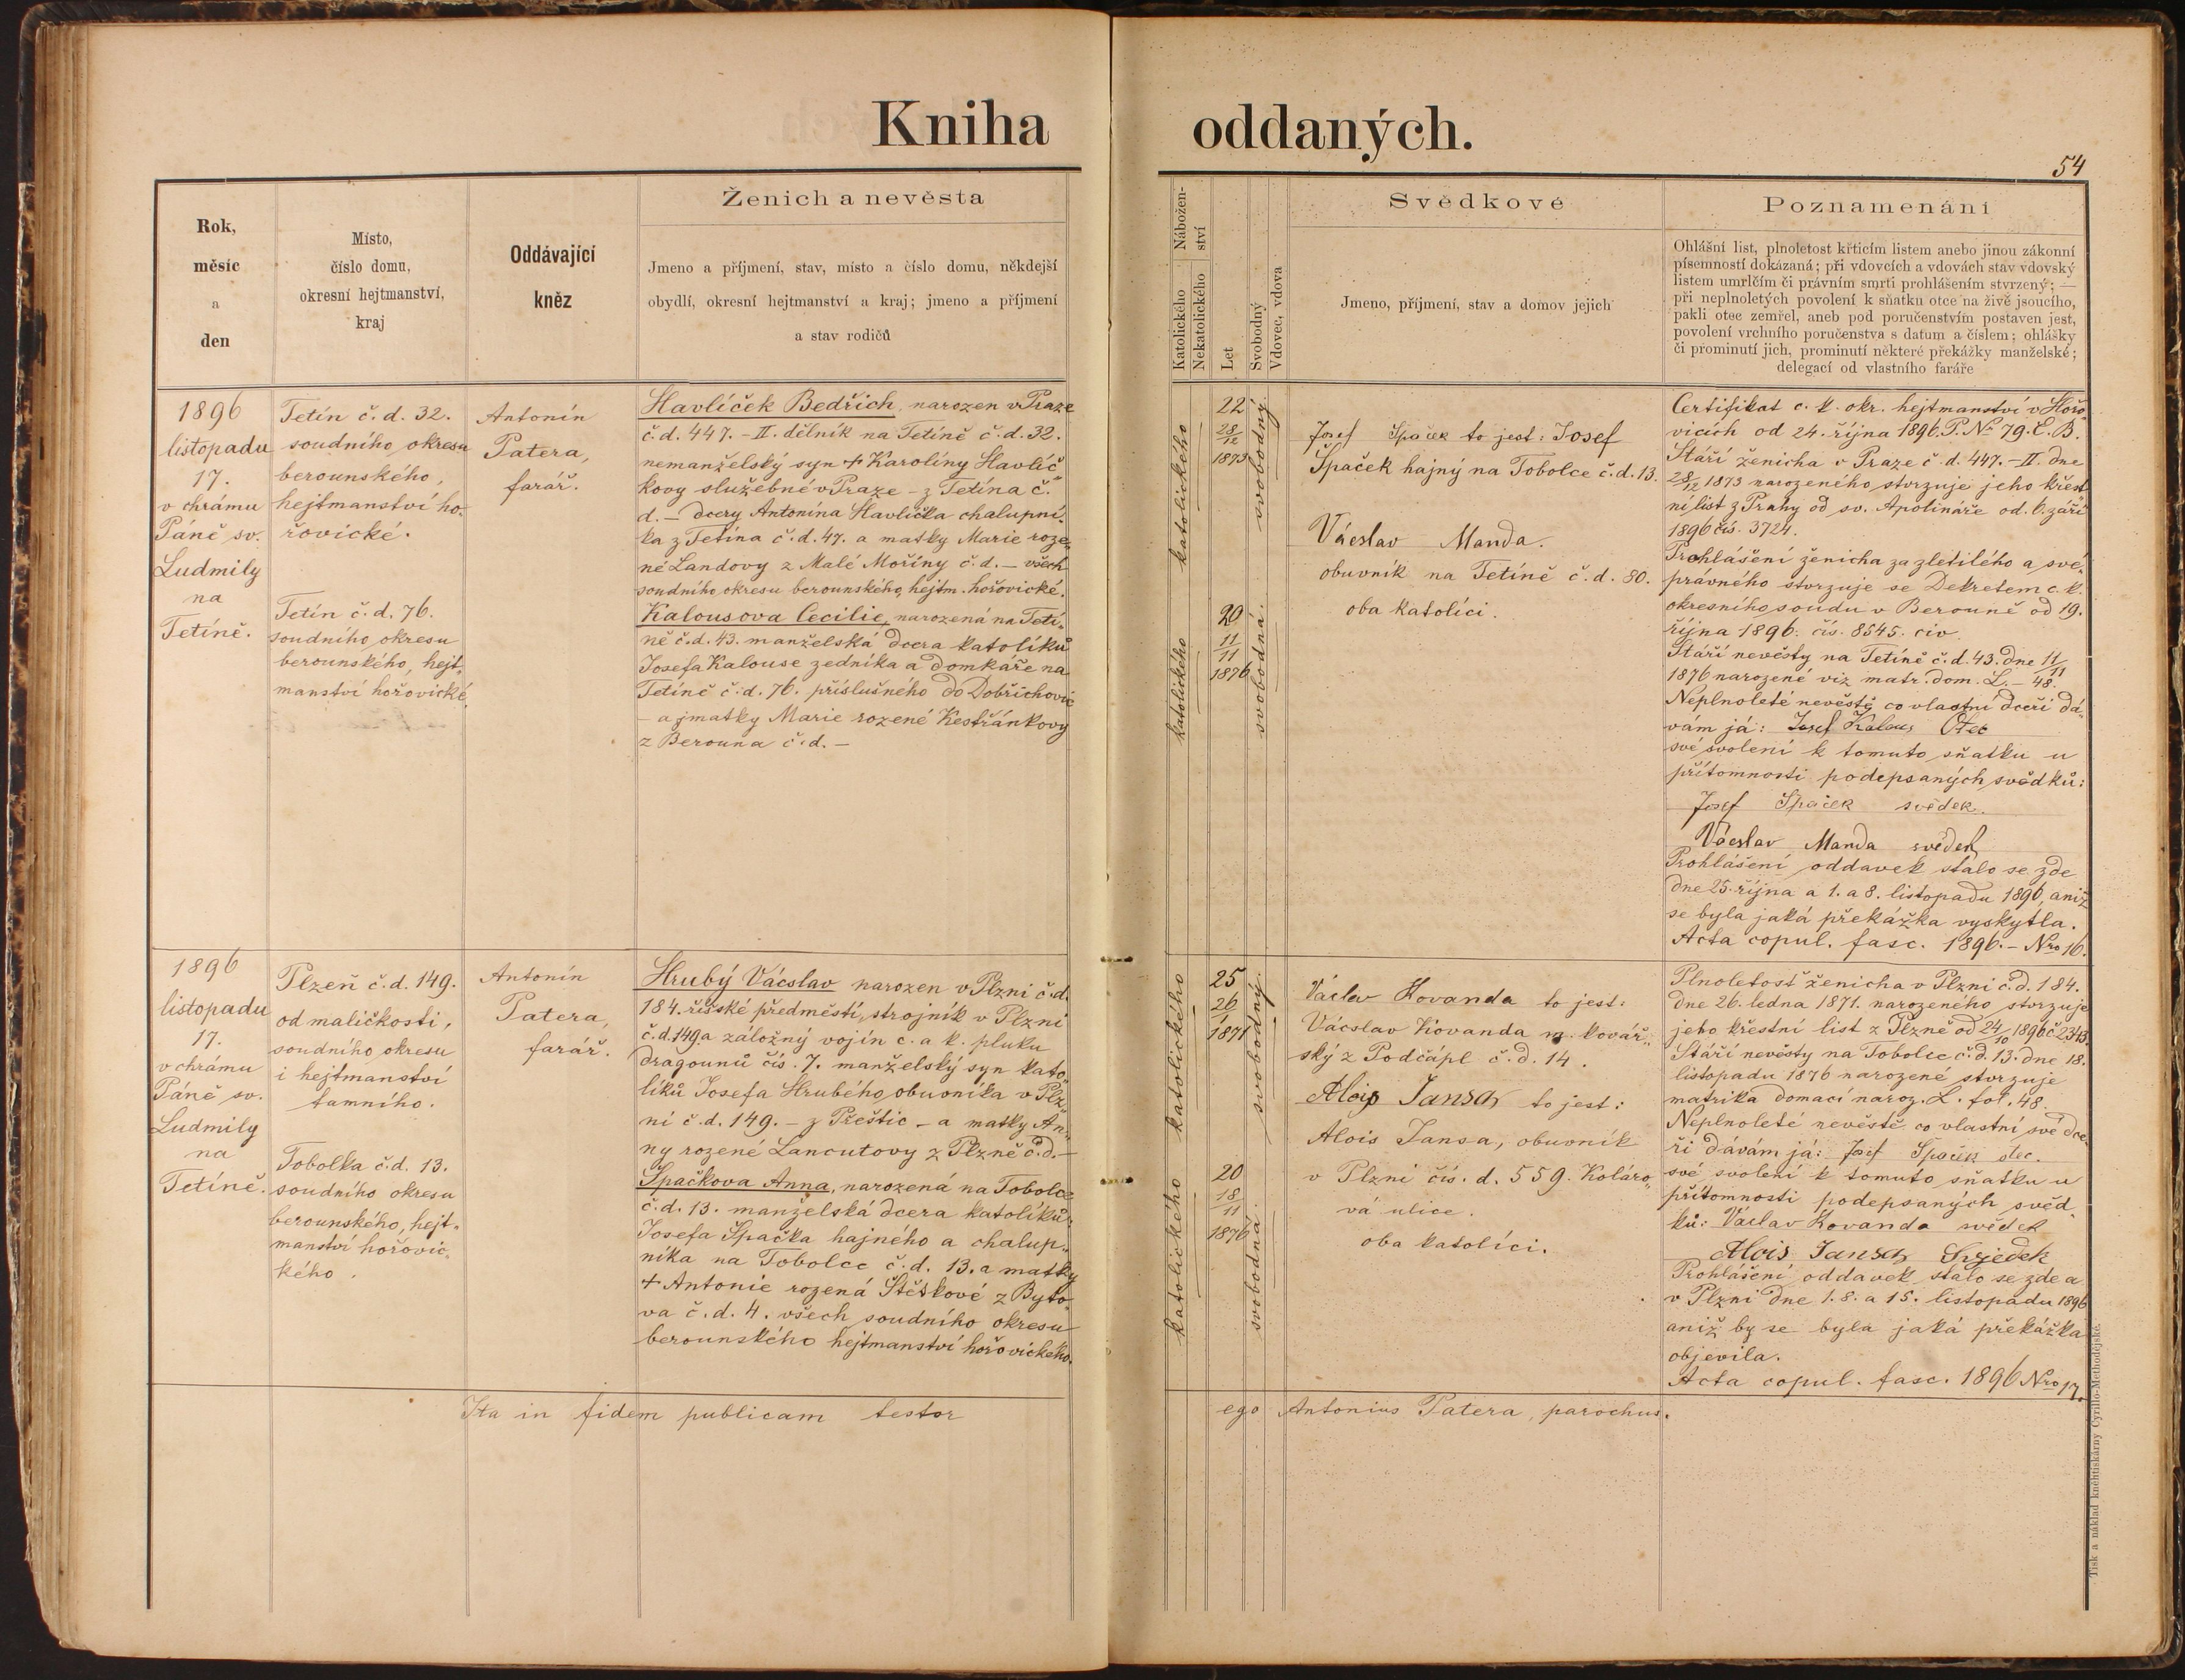 Kniha oddaných.
54
Rok,
měsíc
a
den
Místo,
číslo domu,
okresní hejtmanství,
kraj
Oddávající
kněz
Ženich a nevěsta
Jmeno a příjmení, stav, místo a číslo domu, někdejší
obydlí, okresní hejtmanství a kraj; jmeno a příjmení
a stav rodičů
Nábožen-
ství
Katolického
Nekatolického
Let
Svobodný
Vdovec, vdova
Svědkové
Jmeno, příjmení, stav a domov jejich
Poznamenání
Ohlášní list, plnoletost křticím listem anebo jinou zákonní
písemností dokázaná; při vdovcích a vdovách stav vdovský
listem umrlčím či právním smrti prohlášením stvrzený; —
při neplnoletých povolení k sňatku otce na živě jsoucího,
pakli otec zemřel, aneb pod poručenstvím postaven jest,
povolení vrchního poručenstva s datum a číslem; ohlášky
či prominutí jich, prominutí některé překážky manželské;
delegací od vlastního faráře
1896
listopadu
17.
v chrámu
Páně sv.
Ludmily
na
Tetíně.
Tetín č. d. 32.
soudního okresu
berounského,
hejtmanství ho-
řovické.
Tetín č. d. 76.
soudního okresu
berounského, hejt-
manství hořovické.
Antonín
Patera,
farář.
Havlíček Bedřich, narozen v Praze
č. d. 447. - II. dělník na Tetíně č. d. 32.
nemanželský syn + Karolíny Havlíč-
kovy služebné v Praze - z Tetína č.
d. - dcery Antonína Havlíčka chalupní-
ka z Tetína č. d. 47. a matky Marie roze-
né Landovy z Malé Mořiny č. d. - všech
soudního okresu berounského, hejtm. hořovické.
Kalousova Cecilie, narozená na Tetí-
ně č. d. 43. manželská dcera katolíků
Josefa Kalouse zedníka a domkáře na
Tetíně č. d. 76. příslušného do Dobřichovic
- a matky Marie rozené Kestřánkovy
z Berouna č. d. -
katolického
22
28/12
1873
svobodný
katolického
20
11/11
1876
svobodná.
Josef Špaček to jest: Josef
Špaček hajný na Tobolce č. d. 13.
Vácslav Manda.
obuvník na Tetíně č. d. 80.
oba katolíci.
Certifikat c. k. okr. hejtmanství v Hořo-
vicích od 24. října 1896. P. No 79. E. B.
Stáří ženicha v Praze č. d. 447. - II. dne
28/12 1873 narozeného stvrzuje jeho křest-
ní list z Prahy od sv. Apolináře od. 6. září
1896 čís. 3724.
Prohlášení ženicha za zletilého a své-
právného stvrzuje se Dekretem c. k.
okresního soudu v Berouně od 19.
října 1896. čís. 8545. civ.
Stáří nevěsty na Tetíně č. d. 43. dne 11/11
1876 narozené viz matr. dom. L. - 48.
Neplnoleté nevěstě co vlastní dceři dá-
vám já: Josef Kalous Otec
své svolení k tomuto sňatku u
přítomnosti podepsaných svědků:
Josef Špaček svědek.
Vácslav Manda svědek
Prohlášení oddavek stalo se zde
dne 25. října a 1. a 8. listopadu 1896, aniž
se byla jaká překážka vyskytla.
Acta copul. fasc. 1896. - Nro 16.
1896
listopadu
17.
v chrámu
Páně sv.
Ludmily
na
Tetíně.
Plzeň č. d. 149.
od maličkosti,
soudního okresu
i hejtmanství
tamního.
Tobolka č. d. 13.
soudního okresu
berounského, hejt-
manství hořovic-
kého.
Antonín
Patera,
farář.
Hrubý Vácslav narozen v Plzni č. d.
184. říšské předměstí, strojník v Plzni
č. d. 149. a záložný vojín c. a k. pluku
dragounů čís. 7. manželský syn kato-
líků Josefa Hrubého, obuvníka v Plz-
ni č. d. 149. - z Přeštic - a matky An-
ny rozené Lancutovy z Plzně č. d. -
Špačkova Anna, narozená na Tobolce
č. d. 13. manželská dcera katolíků
Josefa Špačka hajného a chalup-
níka na Tobolce č. d. 13. a matky
+ Antonie rozená Štětkové z Byko-
va č. d. 4. všech soudního okresu
berounského hejtmanství hořovického.
katolického
25
26/1
1871
svobodný.
katolického
20
18/11
1876
svobodná.
Václav Kovanda to jest:
Vácslav Kovanda m. kovář-
ský z Podčápl č. d. 14.
Alois Jansa to jest:
Alois Jansa, obuvník
v Plzni čís. d. 559. Koláro-
vá ulice.
oba katolíci.
Plnoletosť ženicha v Plzni č. d. 184.
dne 26. ledna 1871. narozeného stvrzuje
jeho křestní list z Plzně od 24/10 1896 č. 2343.
Stáří nevěsty na Tobolce č. d. 13. dne 18.
listopadu 1876 narozené stvrzuje
matrika domací naroz. L. fol. 48.
Neplnoleté nevěstě co vlastní své dce-
ři dávám já: Josef Špaček otec.
své svolení k tomuto sňatku u
přítomnosti podepsaných svěd-
ků: Václav Kovanda svědek
Alois Jansa Svjedek
Prohlášení oddavek stalo se zde a
v Plzni dne 1. 8. a 15. listopadu 1896
aniž by se byla jaká překážka
objevila.
Acta copul. fasc. 1896 Nro 17.
Ita in fidem publicam testor ego Antonius Patera, parochus.
Tisk a náklad kněhtiskárny Cyrillo-Methodějské.